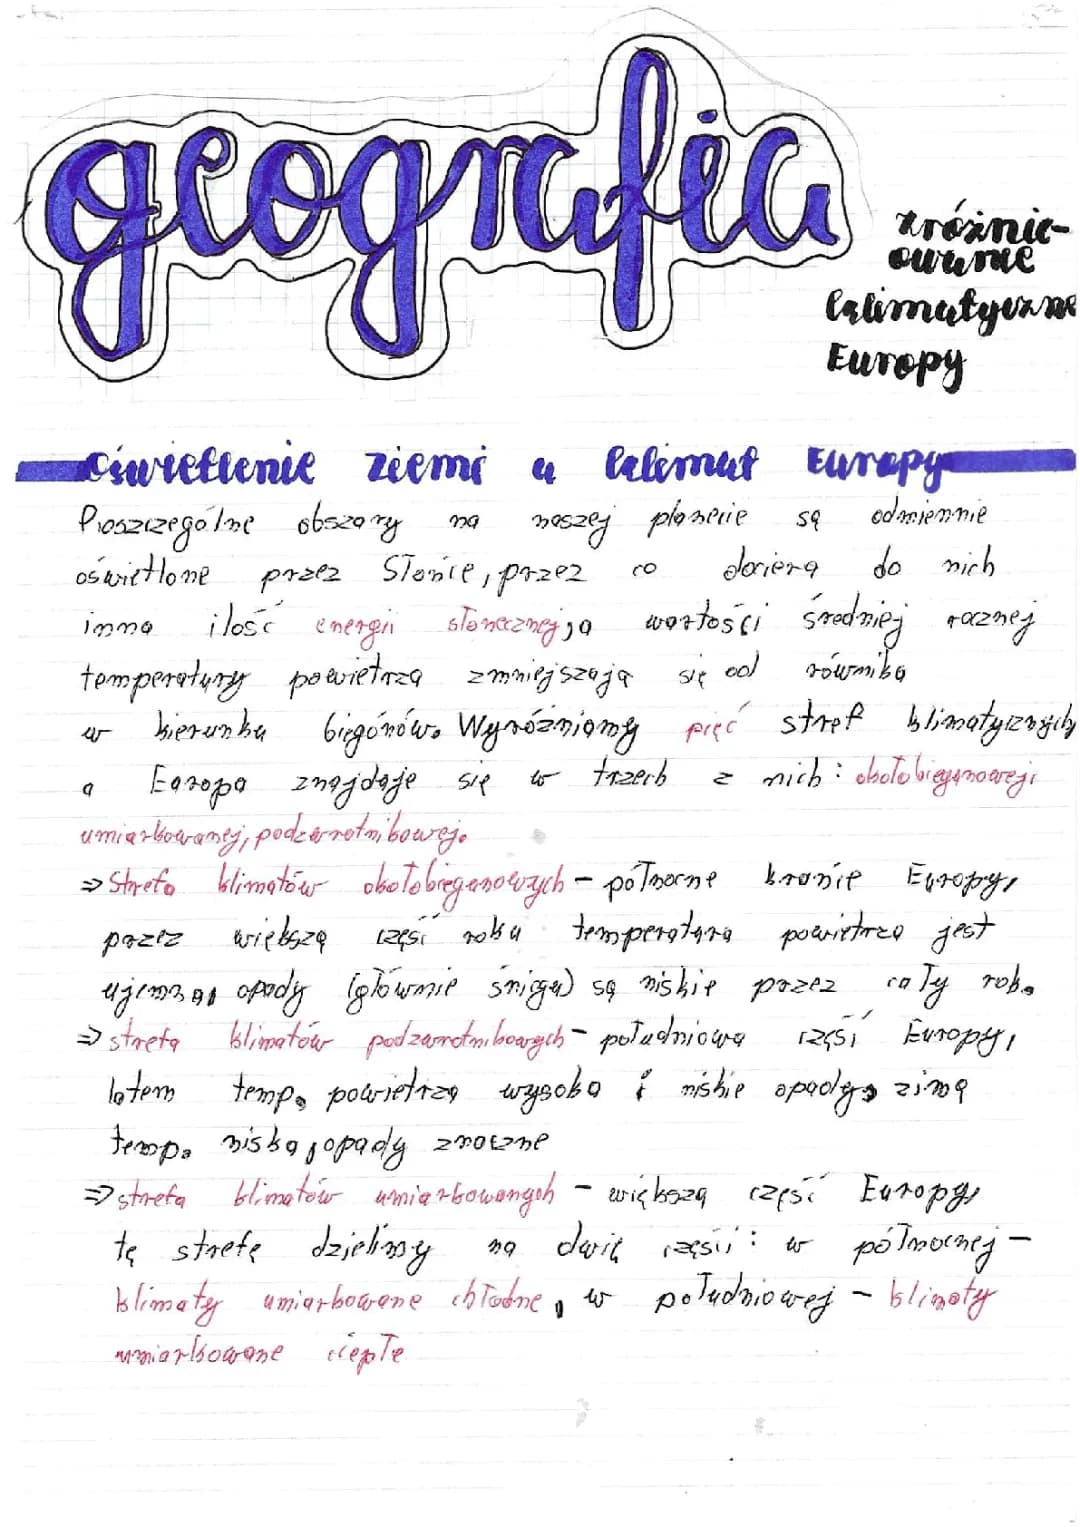 geografia
zróżnic-
owanie
klimatyczne
Europy
Oświetlenie Ziemi a klimat Europy
Poszczególne obszary na naszej planecie są odmiennie
oświetlone przez Słońce, przez co dociera do nich
inna ilość energii słonecznej, a wartości średniej rocznej
temperatury powietrza zmniejszają się od równika
w kierunku biegunów. Wyróżniamy pięć stref klimatycznych
a Europa znajduje się w trzech z nich: okołobiegunowej,
umiarkowanej, podzwrotnikowej.
⇒ Strefa klimatów okołobiegunowych - północne krańce Europy,
przez większą część roku temperatura powietrza jest
ujemna, opady (głównie śniegu) są niskie przez cały rok.
⇒ strefa klimatów podzwrotnikowych - południowa część Europy,
latem temp. powietrza wysoka i niskie opady, zimą
temp. niska, opady znaczne
⇒ strefa klimatów umiarkowanych - większa część Europy,
tę strefę dzielimy na dwie części: w północnej -
klimaty umiarkowane chłodne, w południowej - klimaty
umiarkowane ciepłe